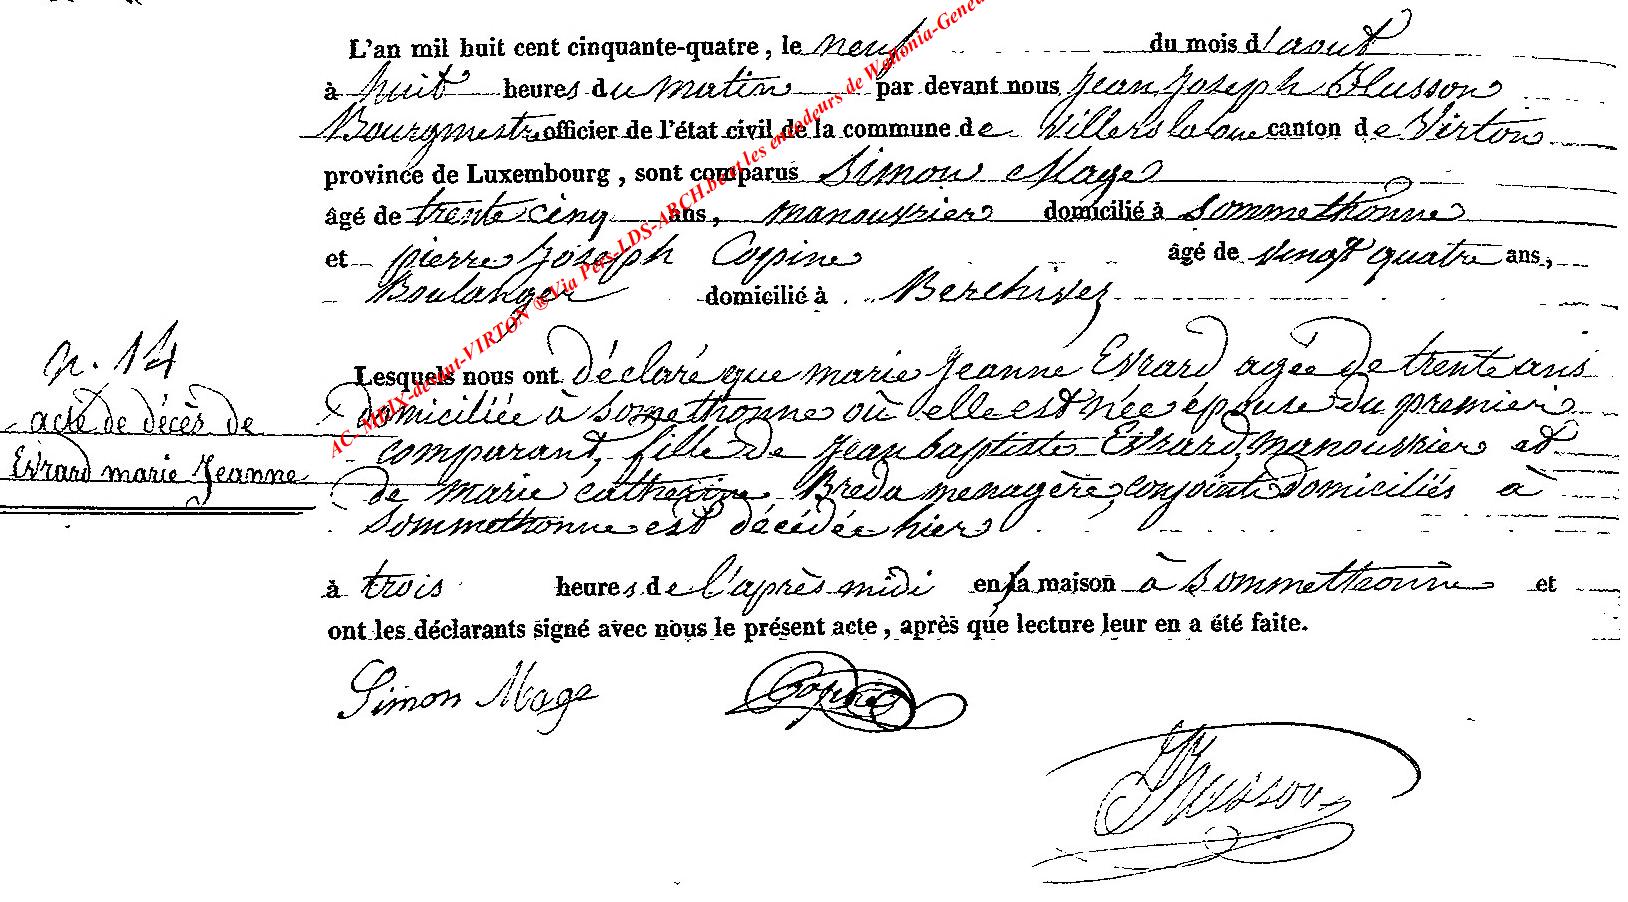 L'an mil huit cent cinquante-quatre, le neuf du mois d'aout
à huit heures du matin par devant nous Jean Joseph Husson
Bourgmestre officier de l'état civil de la commune de Villers la loue canton de Virton
province de Luxembourg, sont comparus Simon Mage
âgé de trente cinq ans, manouvrier domicilié à Sommethonne
et pierre Joseph Copine âgé de vingt quatre ans,
Boulanger domicilié à Berchivez
n. 14
acte de décès de
Evrard marie Jeanne
Lesquels nous ont déclaré que marie Jeanne Evrard agée de trente ans
domiciliée à Somethonne où elle est née épouse du premier
comparant, fille de Jean baptiste Evrard, manouvrier et
de marie catherine Breda menagère, conjoints domiciliés à
Sommethonne est décédée hier
à trois heures de l'après midi en sa maison à Sommethonne et
ont les déclarants signé avec nous le présent acte, après que lecture leur en a été faite.
Simon Mage Copine
JJHusson
AC- MEIX-devant-VIRTON ® Via Pers-LDS-ARCH.be et les encodeurs de Wallonia-Genea